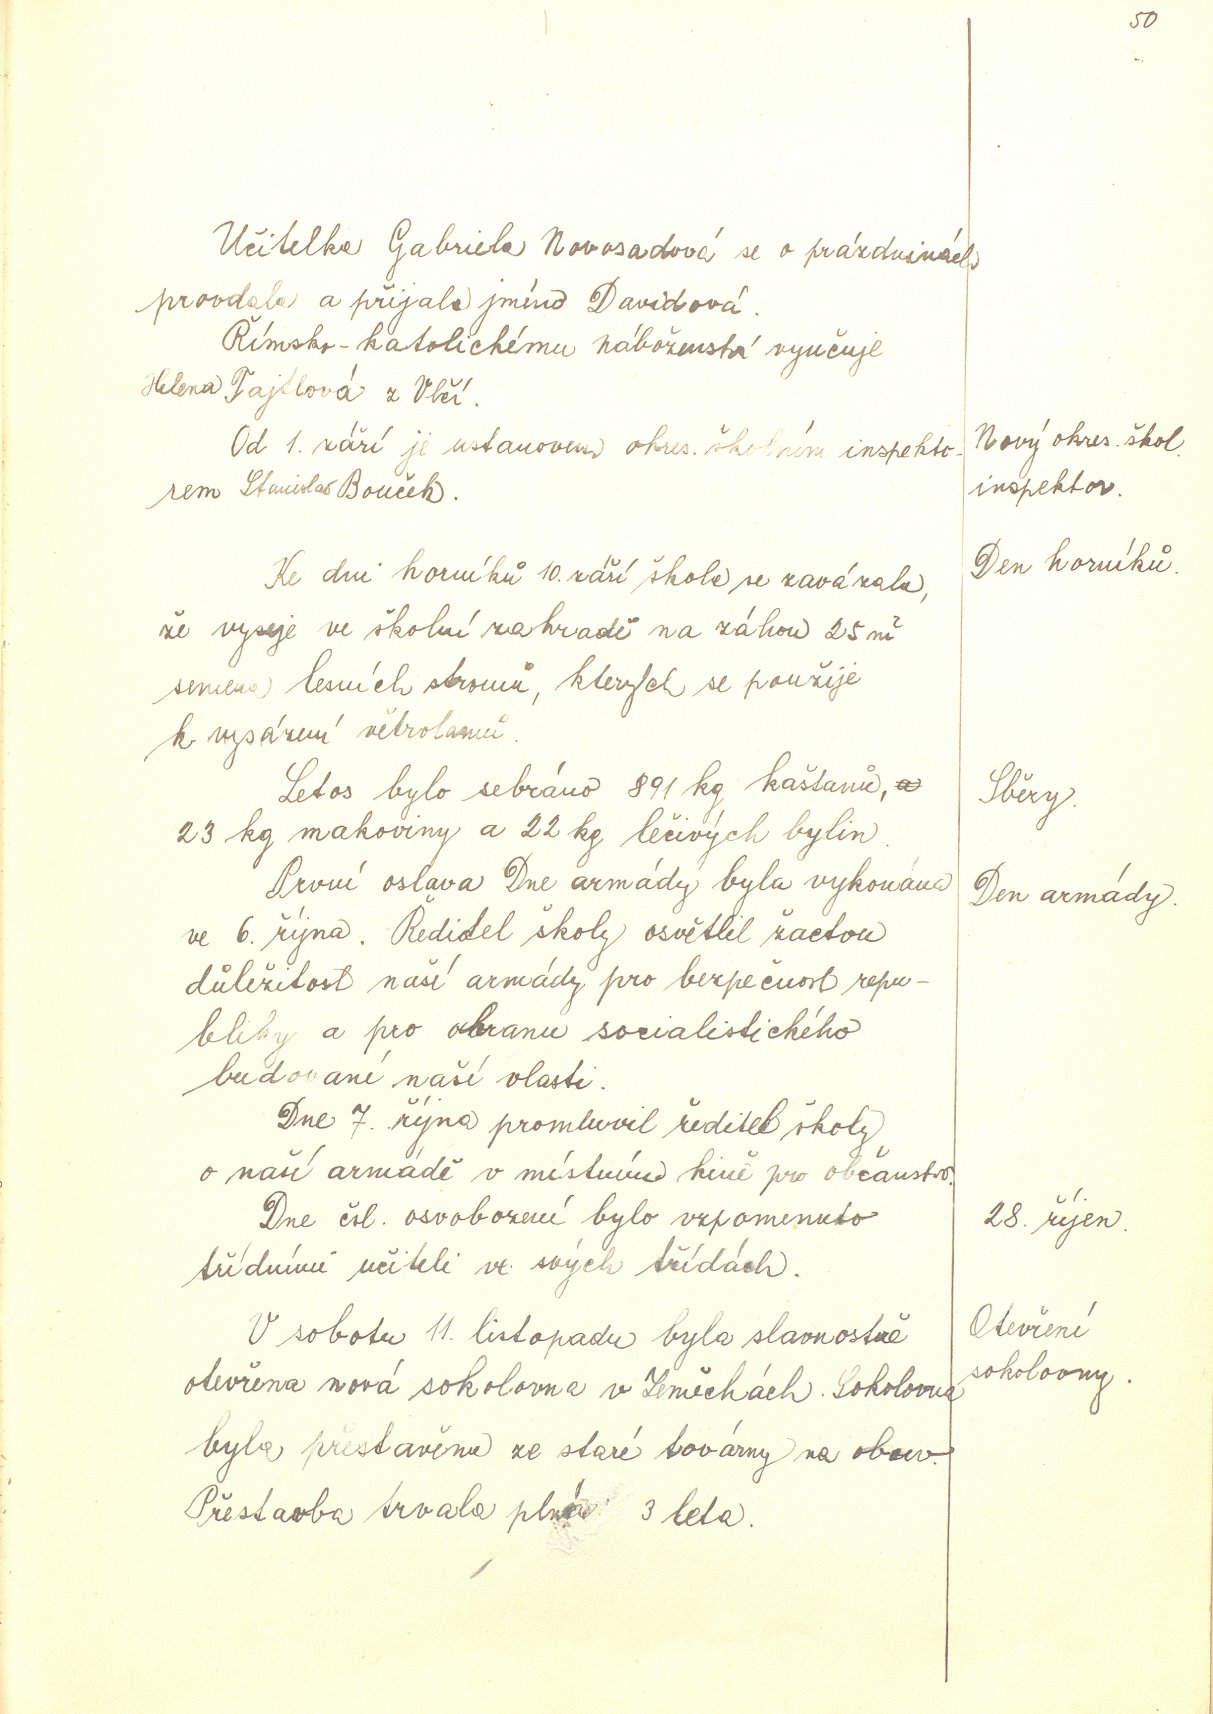 50
Učitelka Gabriela Novosadová se o prázdninách
provdala a přijala jméno Davidová.
Římsko-katolickému náboženství vyučuje
Helena Tajtlová z Vlčí.
Od 1. září je ustanoven okres. školním inspekto-
rem Stanislav Bouček.
Nový okres. škol.
inspektor.
Ke dni horníků 10. září škola se zavázala,
že vyseje ve školní zahradě na záhon 25 m²
semena lesních stromů, kterých se použije
k vysázení větrolamů.
Den horníků.
Letos bylo sebráno 891 kg kaštanů, a
23 kg makoviny a 22 kg léčivých bylin.
Sběry.
První oslava Dne armády byla vykonána
ve 6. října. Ředitel školy osvětlil žactvu
důležitost naší armády pro bezpečnost repu-
bliky a pro obranu socialistického
budování naší vlasti.
Den armády.
Dne 7. října promluvil ředitel školy
o naší armádě v místním kině pro občanstvo.
Dne čsl. osvobození bylo vzpomenuto
třídními učiteli ve svých třídách.
28. říjen.
V sobotu 11. listopadu byla slavnostně
otevřena nová sokolovna v Zeměchách. Sokolovna
byla přestavěna ze staré továrny na obuv.
Přestavba trvala plná 3 leta.
Otevření
sokolovny.